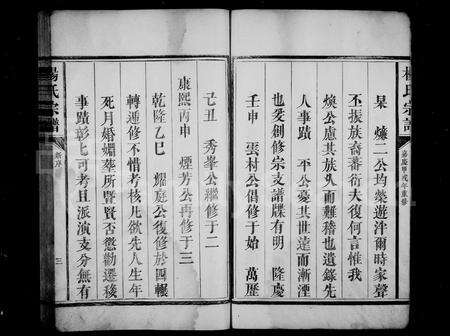 楊氏宗譜
嘉慶甲戌年重修
杲爌二公均藥遊泮爾時家聲
丕振族裔蕃衍夫復何言惟我
煥公慮其族久而難稽也遺錄先
人事蹟平公憂其世遠而漸湮
也爰創修宗支譜牒有明隆慶
壬申雲村公倡修于始萬歷
己丑秀峯公繼修于二
康熙丙申煙芳公再修于三
乾隆乙巳公復修於四輾
轉遞修不惜考核凡欲先人生年
死月婚媾塟所暨賢否懲勸遷移
事蹟彰彰可考且派演支分無有
楊氏宗譜
三